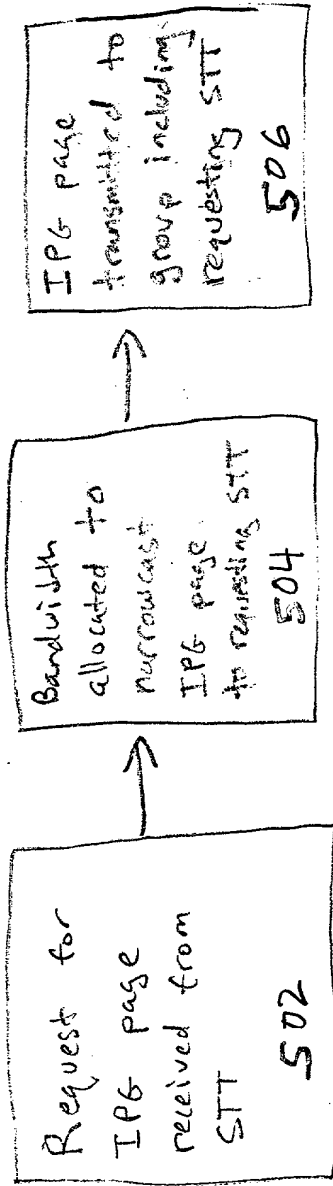 Request for
IPG page
received from
STT
502
Bandwidth
allocated to
narrowcast
IPG page
to requesting STT
504
IPG page
transmitted to
group including
requesting STT
506